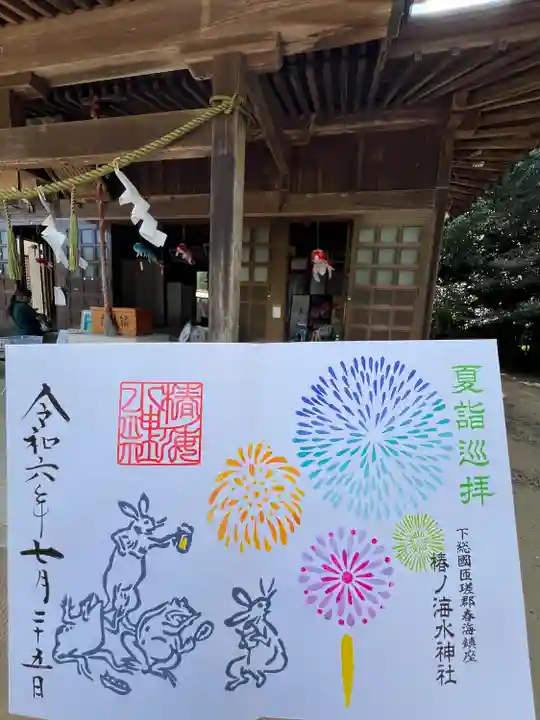 夏詣巡拝
下総國匝瑳郡春海鎮座
椿ノ海水神社
椿海
水神社
令和六年七月二十五日